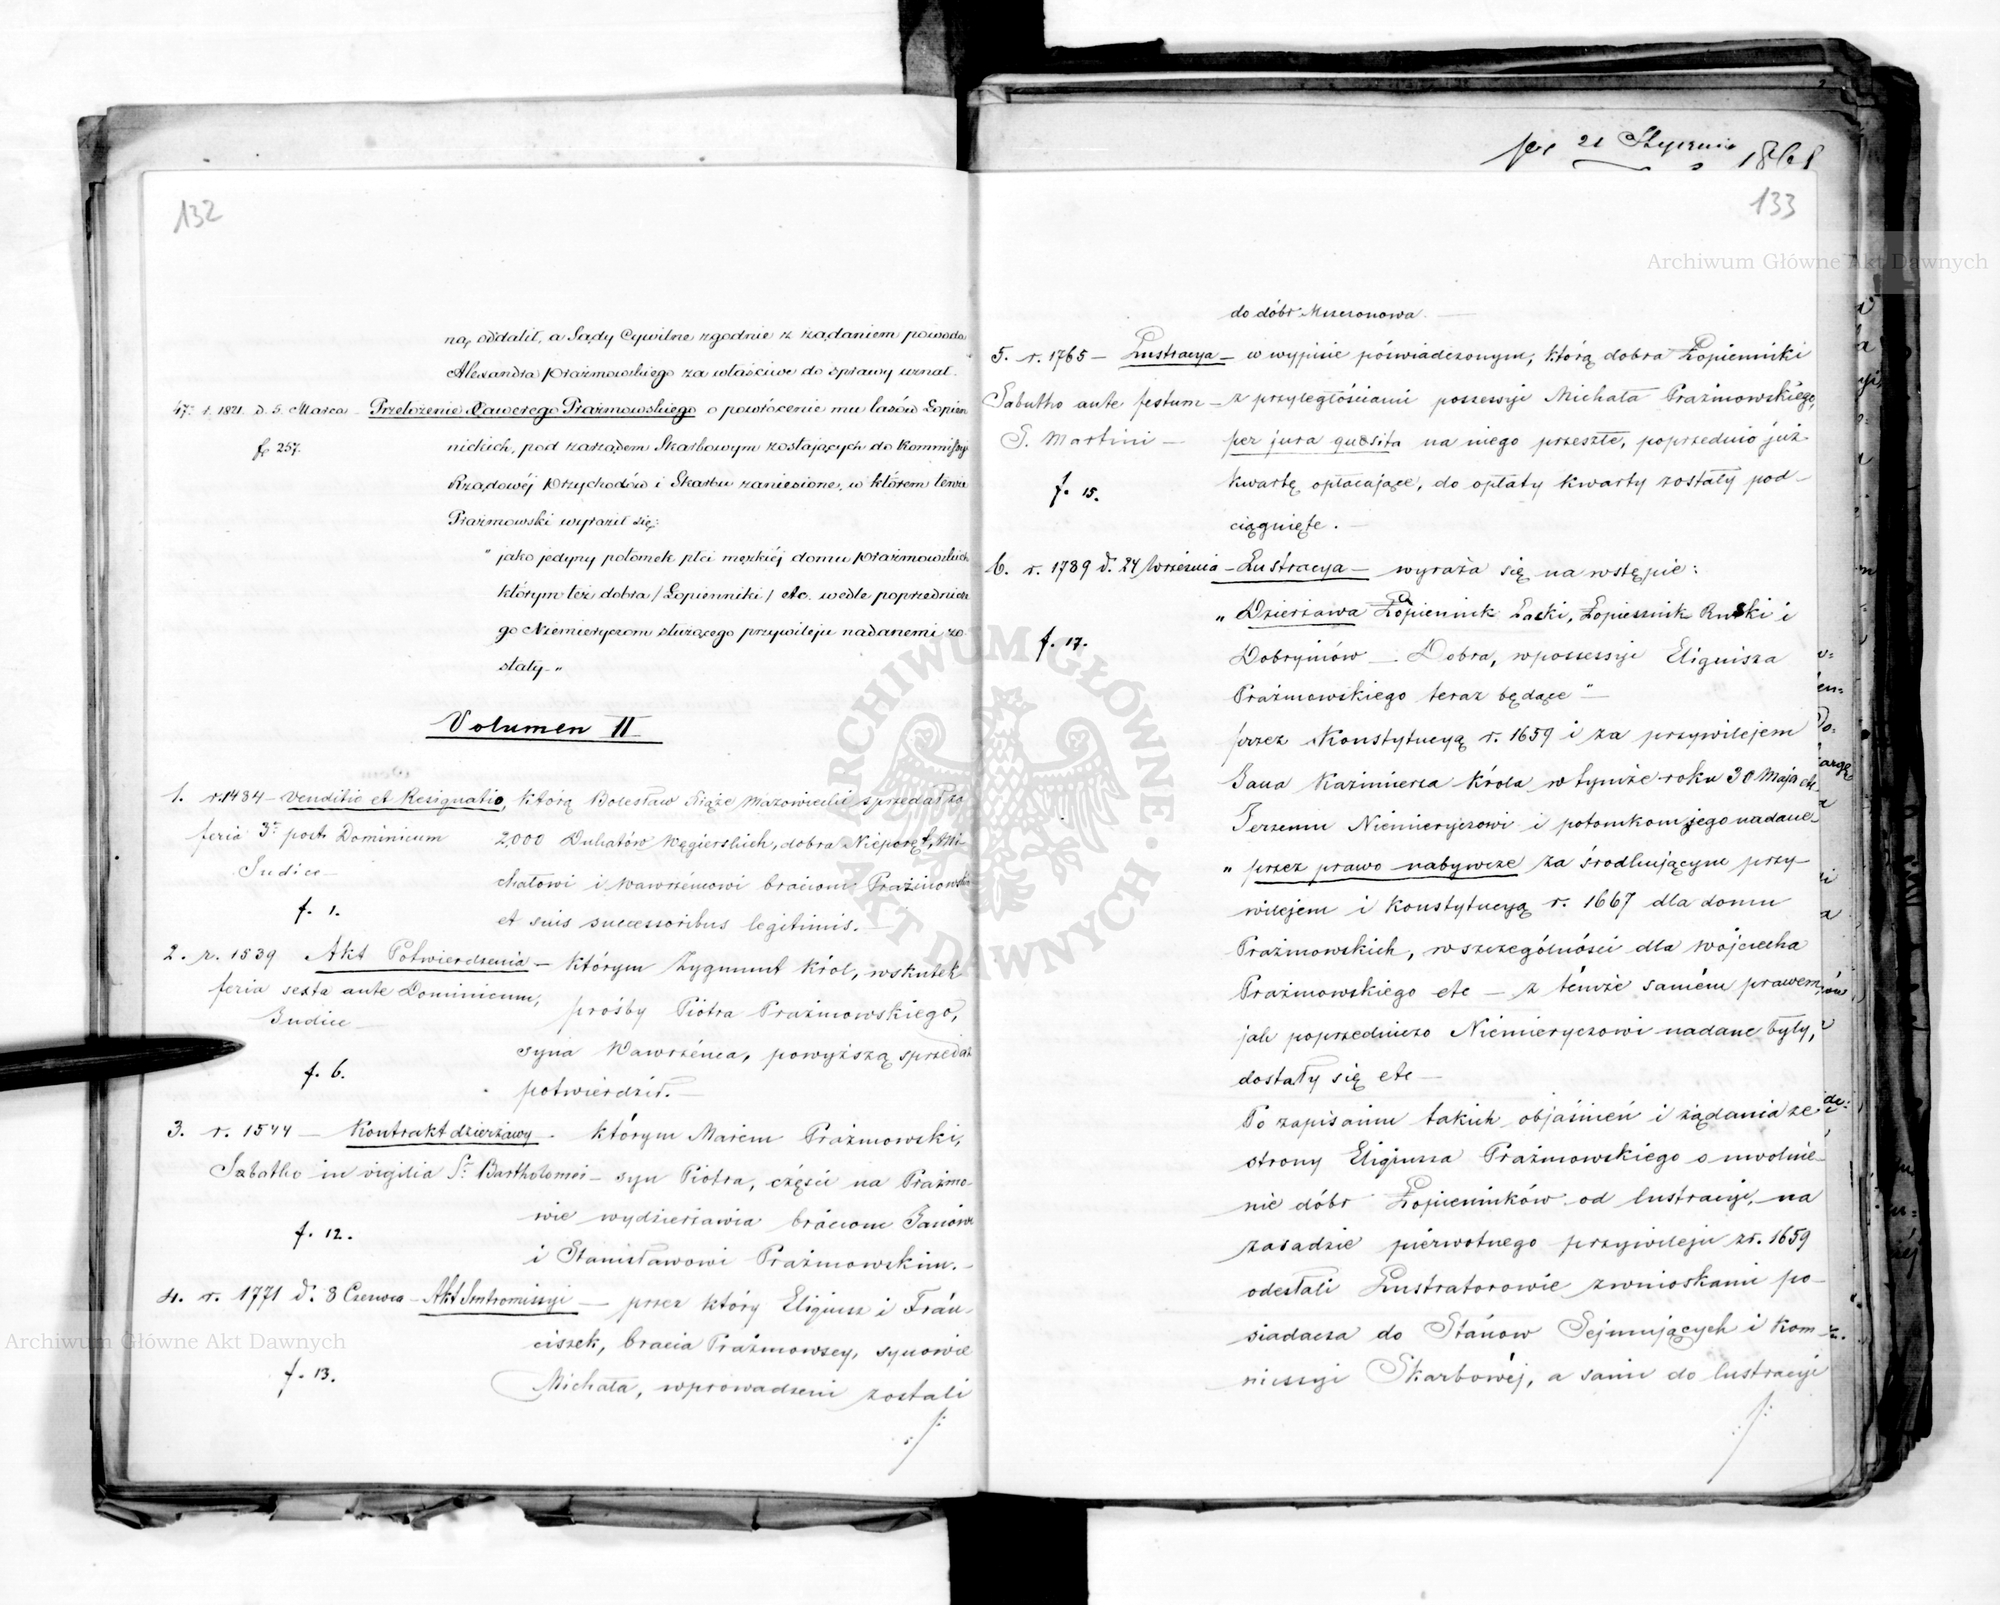 132
na, oddalił, a Sądy Cywilne zgodnie z żądaniem powoda
Alexandra Prażmowskiego za właściwe do sprawy uznał.
47. r. 1821. d. 5. Marca – Przełożenie Xawerego Prażmowskiego o powrócenie mu lasów Łopien
f. 257.
nickich, pod zarządem Skarbowym zostających do Kommissyi
Rządowéj Przychodów i Skarbu zaniesione, w którem tenże
Prażmowski wyraził się:
" jako jedyny potomek płci męzkiéj domu Prażmowskich
którym też dobra /Łopienniki/ etc. wedle poprzednicze
go Niemieryczom służącego przywileju nadanemi zo
stały – "
Volumen II
1. r. 1484 – Venditio et Resignatio, którą Bolesław Xiąże Mazowiecki sprzedał za
feria 3a post Dominicum 2,000 Dukatów Węgierskich, dobra Nieporęt, Mi-
Judica – chałowi i Wawrzeńcowi braciom Prażmowskim
f. 1.
et suis successoribus legitimis. –
2. r. 1539 Akt Potwierdzenia – którym Zygmunt Król, wskutek
feria sexta ante Dominicum, prośby Piotra Prażmowskiego,
Judica –
syna Wawrzeńca, powyższą sprzedaż
f. 6.
potwierdził. –
3. r. 1544 – Kontrakt dzierżawy – którym Marcin Prażmowski,
Sabatho in vigilia St. Bartholomei – syn Piotra, części na Prażmo-
wie wydzierżawia braciom Janowi
f. 12.
i Stanisławowi Prażmowskim. –
4. r. 1771 d. 8 Czerwca – Akt Intromissyi – przez który Eligiusz i Fran-
ciszek, bracia Prażmowscy, synowie
f. 13.
Michała, wprowadzeni zostali
21 Stycznia 1868
133
do dóbr Mszczonowa. –
5. r. 1765 – Lustracya – w wypisie poświadczonym, którą dobra Łopienniki
Sabatho ante festum – z przyległościami possessyi Michała Prażmowskiego,
S. Martini – per jura quesita na niego przeszłe, poprzednio już
f. 15.
kwartę opłacające, do opłaty kwarty zostały pod-
ciągnięte. –
6. r. 1789 d. 24 Września – Lustracya – wyraża się na wstępie:
" Dzierżawa Łopiennik Lacki, Łopiennik Ruski i
f. 17.
Dobryniów – Dobra, w possessyi Eligiusza
Prażmowskiego teraz będące " –
przez Konstytucyą r. 1659 i za przywilejem
Jana Kazimierza Króla w tymże roku 30 Maja etc
Jerzemu Niemieryczowi i potomkom jego nadane –
" przez prawo nabywcze za środkującym przy-
wilejem i Konstytucyą r. 1667 dla domu
Prażmowskich, w szczególności dla Wojciecha
Prażmowskiego etc – z témże samém prawem
jak poprzedniczo Niemieryczowi nadane były,
dostały się etc –
Po zapisaniu takich objaśnień i żądania ze
strony Eligiusza Prażmowskiego o uwolnie-
nie dóbr Łopienników od lustracyi, na
zasadzie pierwotnego przywileju z r. 1659
odesłali Lustratorowie z wnioskami po-
siadacza do Stanow Sejmujących i Kom-
missyi Skarbowéj, a sami do lustracyi
Archiwum Główne Akt Dawnych
Archiwum Główne Akt Dawnych
ARCHIWUM GŁÓWNE AKT DAWNYCH